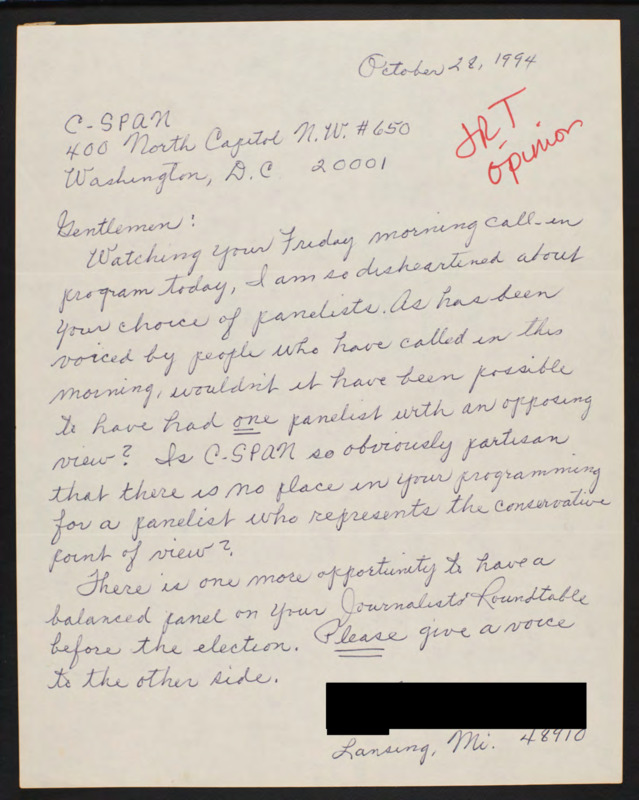 October 28, 1994
C-SPAN
400 North Capitol N.W. #650
Washington, D.C 20001
JRT
- opinion
Gentlemen:
Watching your Friday morning call-in
program today, I am so disheartened about
your choice of panelists. As has been
voiced by people who have called in this
morning, wouldn't it have been possible
to have had one panelist with an opposing
view? Is C-SPAN so obviously partisan
that there is no place in your programming
for a panelist who represents the conservative
point of view?
There is one more opportunity to have a
balanced panel on your Journalists' Roundtable
before the election. Please give a voice
to the other side.
Lansing, Mi. 48910